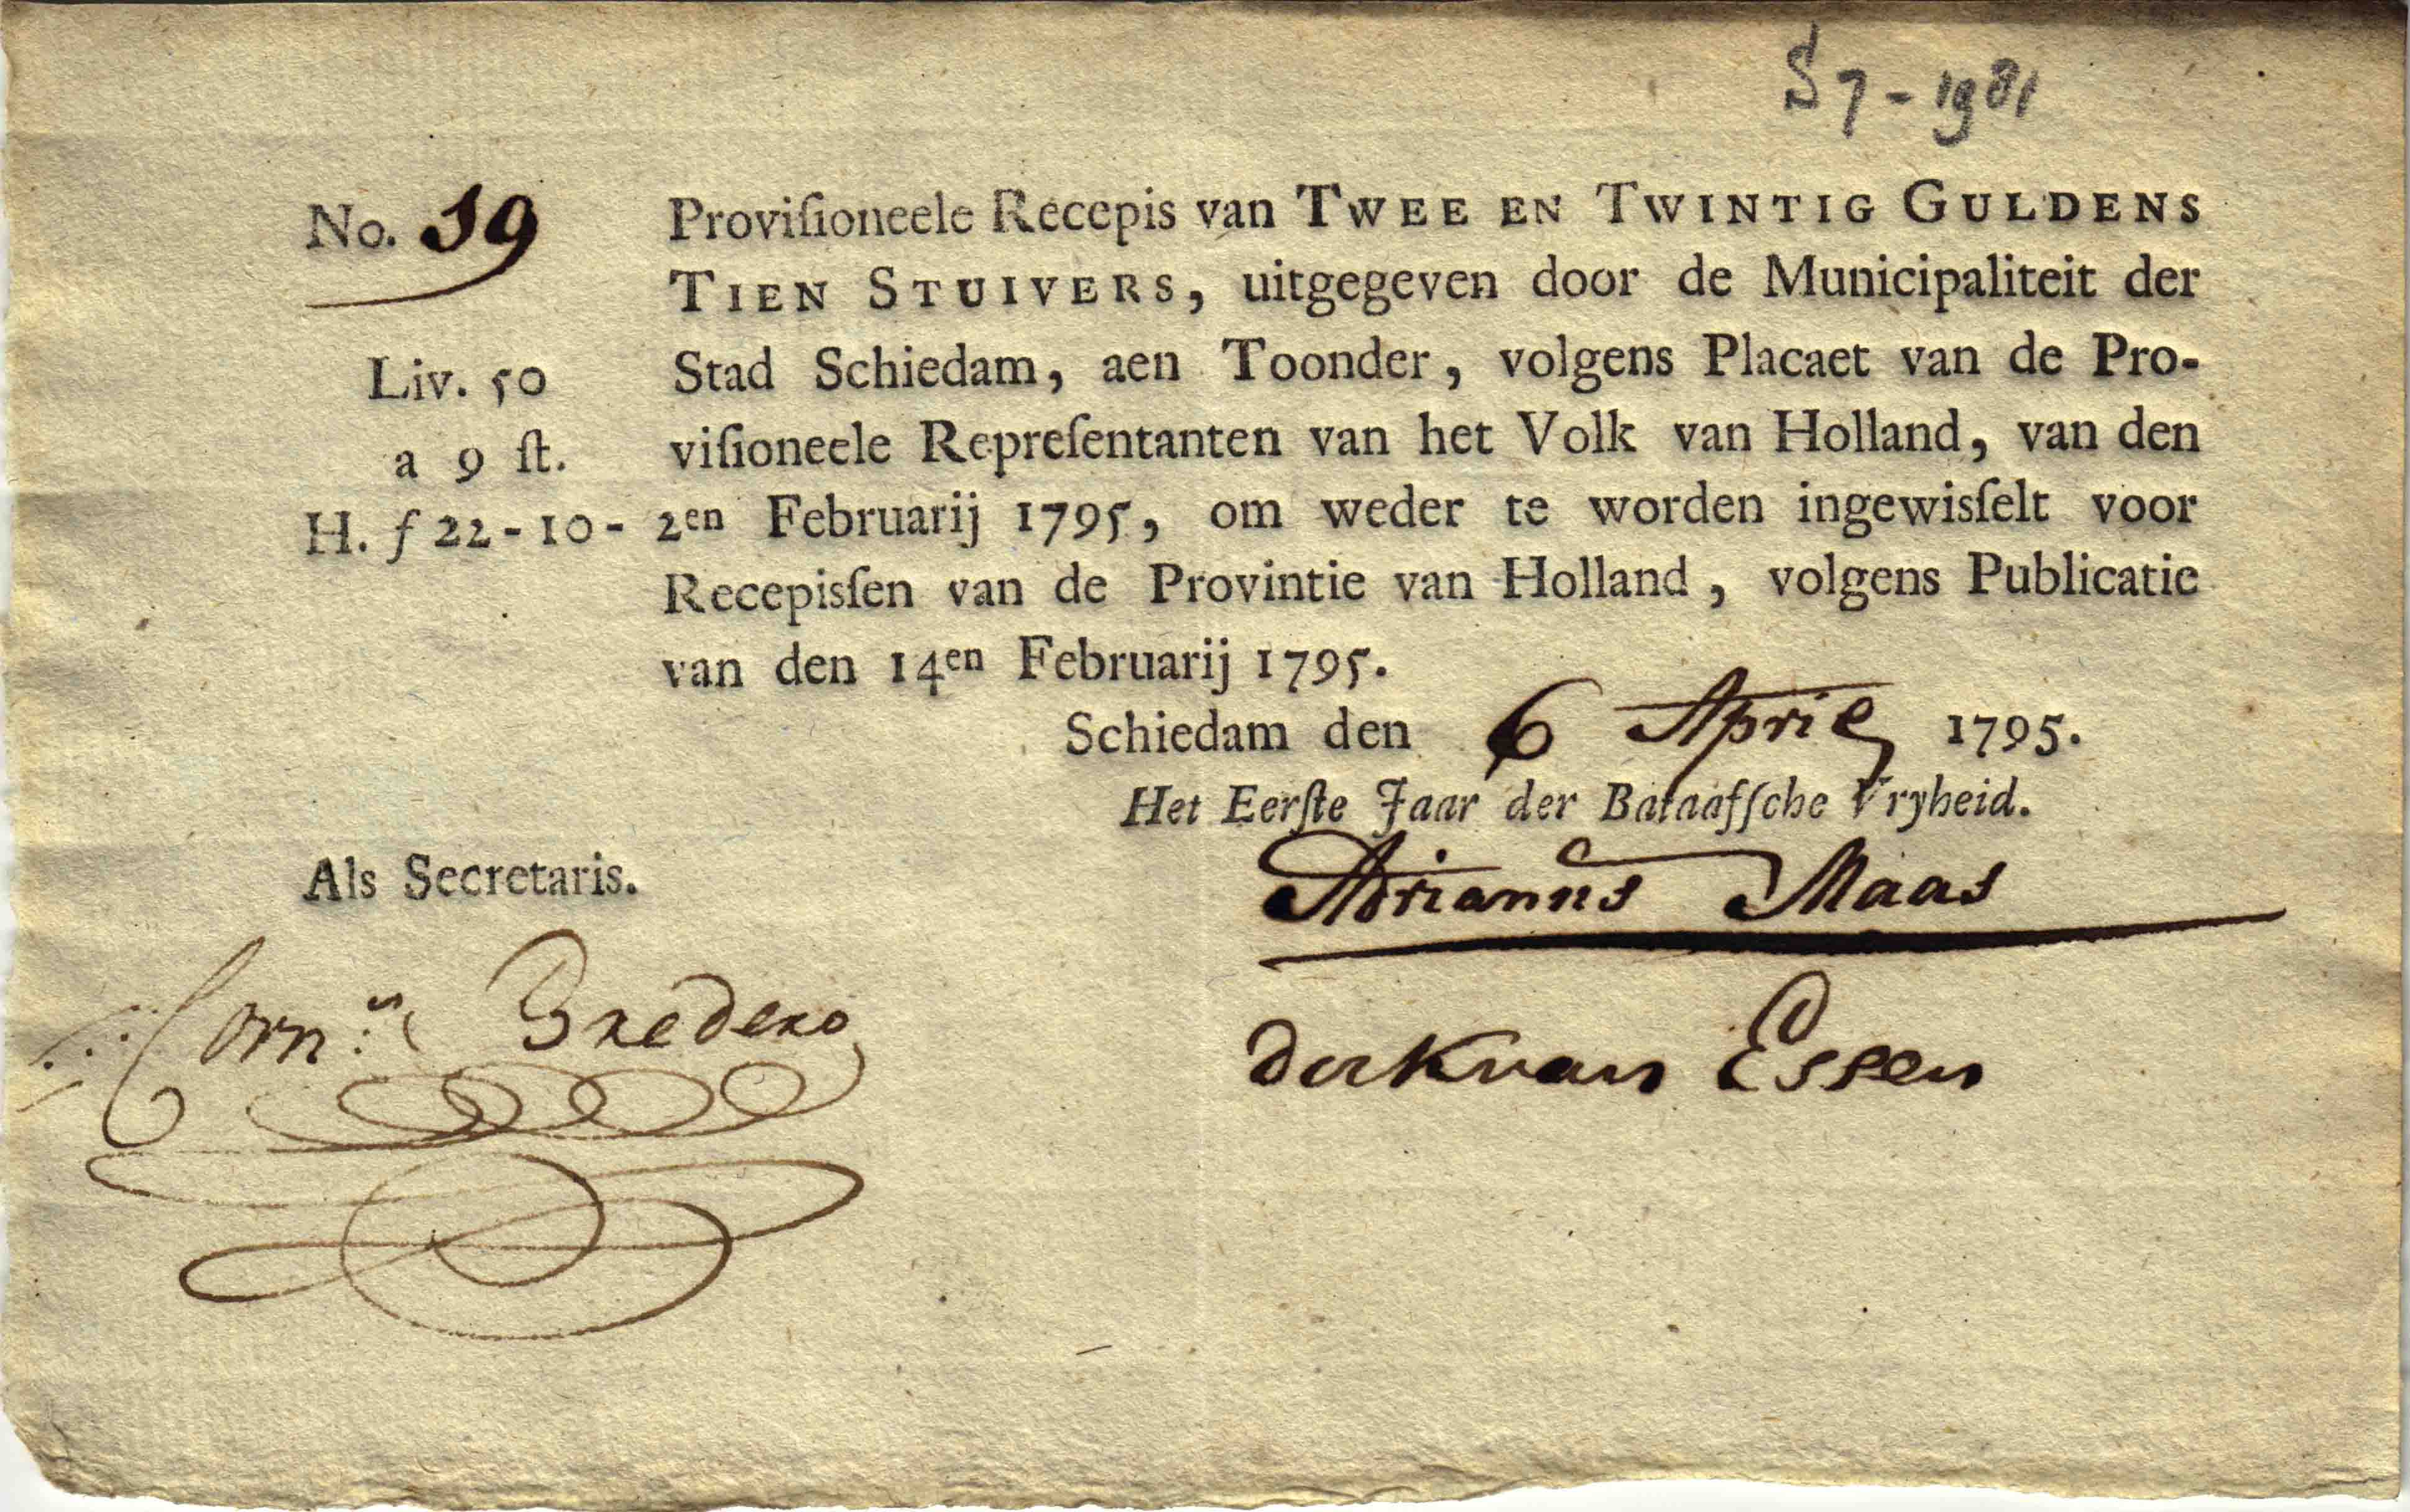 S 7 - 1981
No. 19
Proviſioneele Recepis van TWEE EN TWINTIG GULDENS
TIEN STUIVERS, uitgegeven door de Municipaliteit der
Liv. 50
Stad Schiedam, aen Toonder, volgens Placaet van de Pro-
a 9 ſt.
viſioneele Repreſentanten van het Volk van Holland, van den
H. f 22-10-
2en Februarij 1795, om weder te worden ingewisſelt voor
Recepisſen van de Provintie van Holland, volgens Publicatie
van den 14en Februarij 1795.
Schiedam den 6 April 1795.
Het Eerſte Jaar der Bataafſche Vryheid.
Als Secretaris.
Adrianus Maas
Corn:s Bredero
dirk van Essen